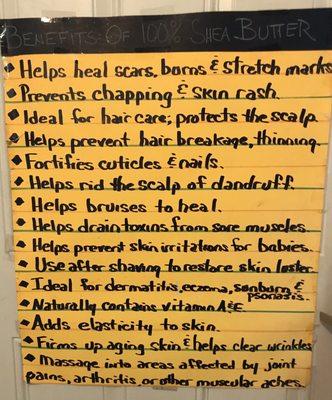 BENEFITS: OF 100% SHEA BUTTER
Helps heal scars, borns & stretch marks
Prevents chapping & skin rash.
Ideal for hair care; protects the scalp.
Helps prevent hair breakage, thinning.
Fortifies cuticles & nails.
Helps rid the scalp of dandruff.
Helps bruises to heal.
Helps drain toxins from sore muscles.
Helps prevent skin irritations for babies.
Use after shaving to restore skin luster.
Ideal for dermatitis, eczema, sunburn &
psoriasis.
Naturally contains vitamin A & E.
Adds elasticity to skin.
Firms up aging skin & helps clear wrinkles
Massage into areas affected by joint
pains, arthritis, or other muscular aches.